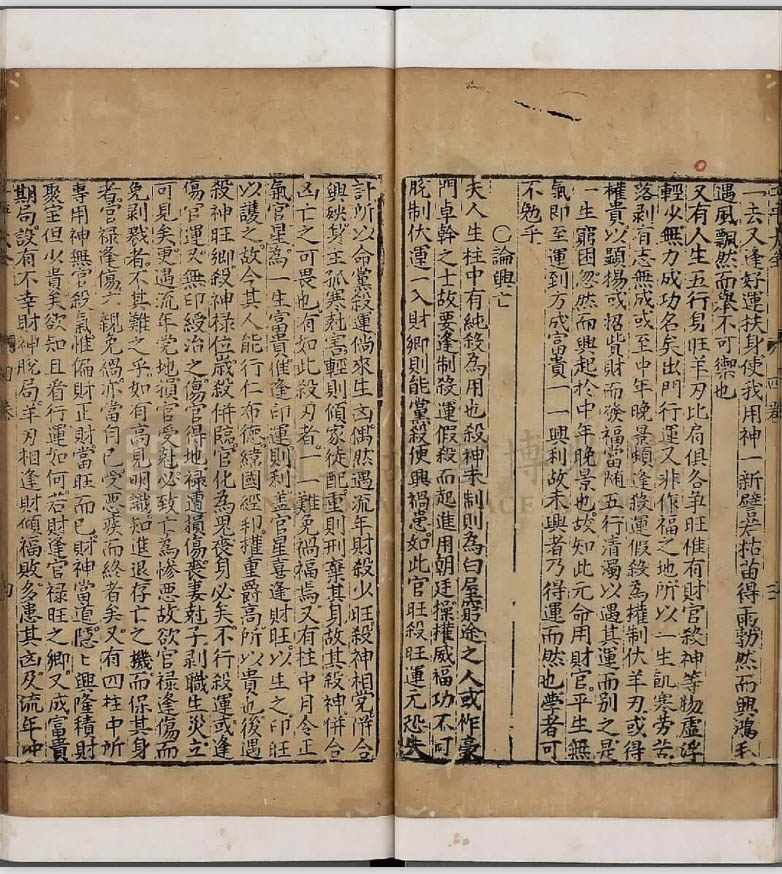 一去又逢好運扶身使我用神一新譬若枯苗得雨勃然而興鴻毛
遇風飄然而舉不可禦也
又有人生五行身旺羊刃比局俱各爭旺惟有財官殺神等物虛浮
輕少無力成功名矣出門行運又非作福之地所以一生飢寒勞苦
落剝有志無成或至中年晚景頓逢殺運假殺為權制伏羊刃或得
權貴以顯揚或招貲財而發福當隨五行清濁以遇其運而別之是
一生窮困忽然而興起於中年晚景也故知此元命用財官平生無
氣即至運到方成富貴一一興利故未興者乃得運而然也學者可
不勉乎
○論興亡
夫人生柱中有純殺為用也殺神未制則為白屋窮途之人或作豪
門卓幹之士故要逢制殺運假殺而起進用朝廷操權威福功不可
脫制伏運一入財鄉則能黨殺使興禍患如此官旺殺旺運元恐失
計所以命黨殺運倘來生凶偶然遇流年財殺少旺殺神相黨併合
興殃其主孤寒剋害輕則傾家徒配重則刑棄其身故其殺神併合
凶亡之可畏也有如此殺刃者一一難免禍福焉又有柱中月令正
氣官星為一生富貴催逢印運則利蓋官星喜逢財旺以生之印旺
以護之故今其人能行仁布德緯國經邦權重爵高所以貴也後遇
殺神旺鄉殺神祿位歲殺併臨官化為鬼喪身必矣不行殺運或逢
傷官運又無印綬治之傷官得地祿遭損傷喪妻剋子剝職生災立
可見矣更遇流年黨地損官受剋必致亡為慘惡故欲官祿逢傷而
免剝戮者不其難之乎如有高見明識知進退存亡之機而保其身
者官祿逢傷六親免禍亦當自己受惡疾而終者矣又有四柱中所
專用神無官殺氣惟偏財正財當旺而已財神當道隱匕興隆積財
聚寶但少貴矣欲知且看行運如何若財逢官祿旺之鄉又成富貴
期局設有不幸財神脫局羊刃相逢財傾福敗多患其凶及流年冲